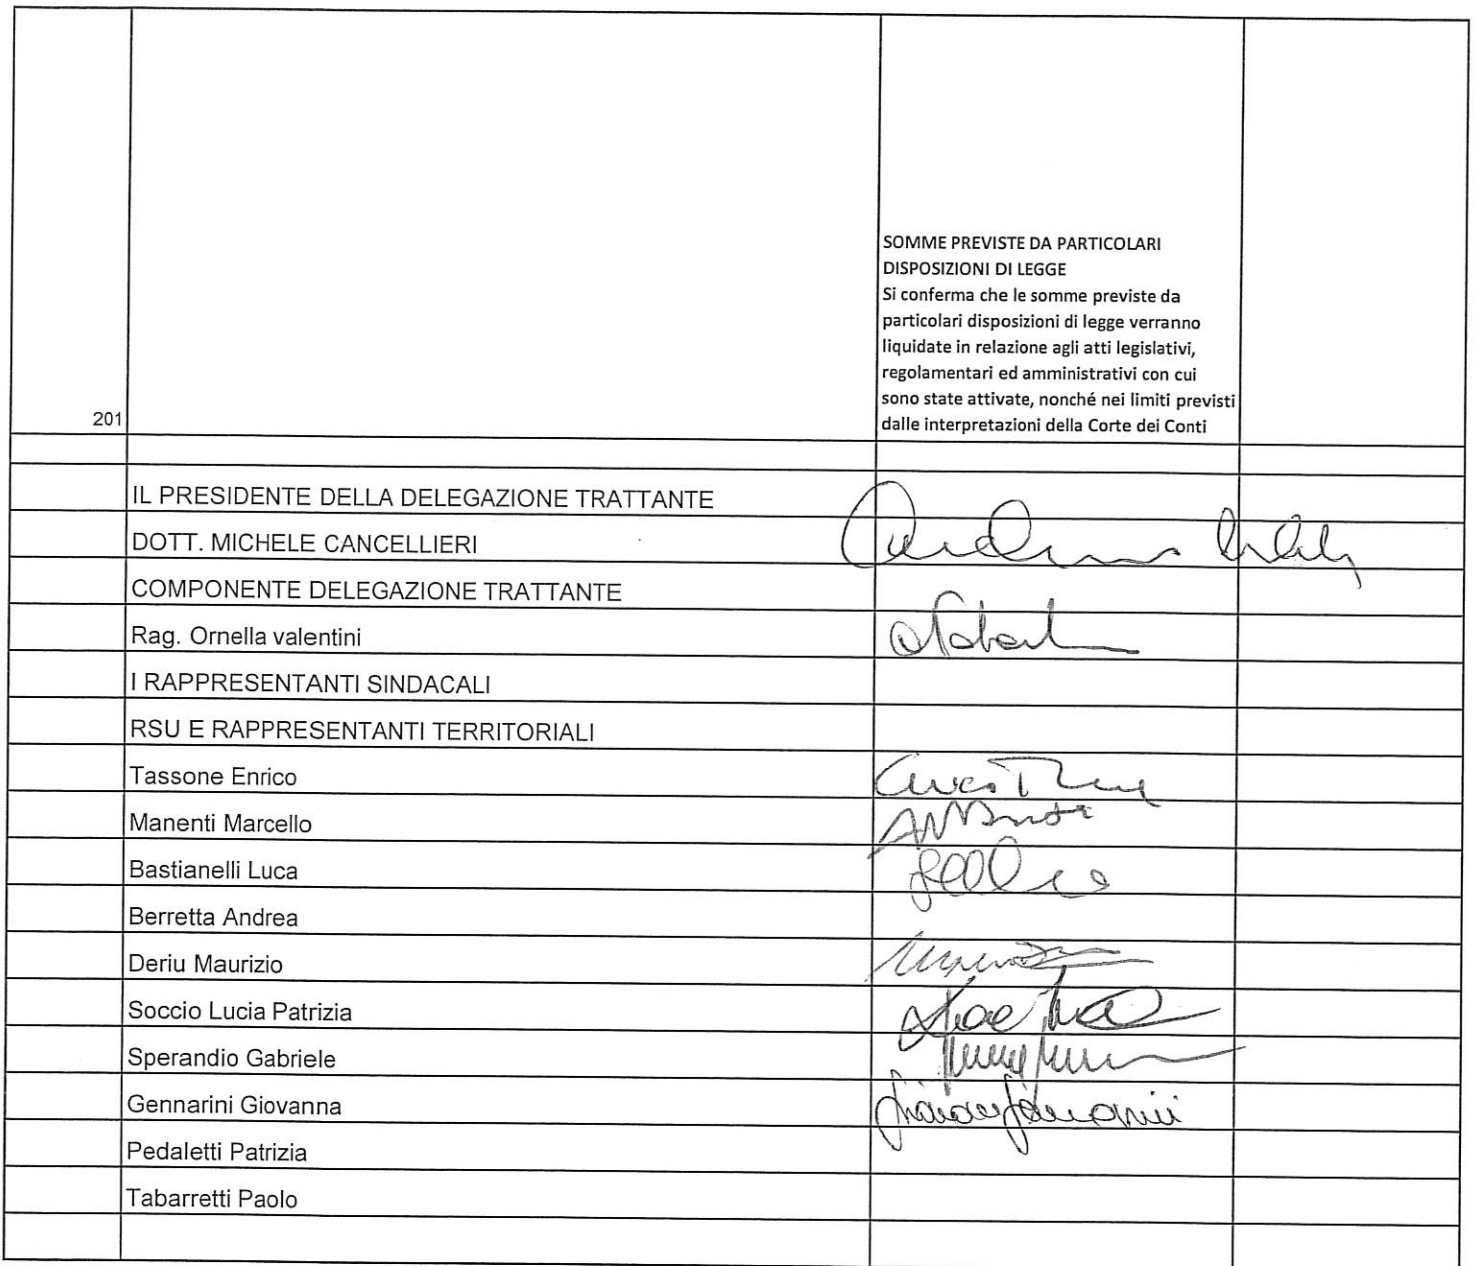 SOMME PREVISTE DA PARTICOLARI
DISPOSIZIONI DI LEGGE
Si conferma che le somme previste da
particolari disposizioni di legge verranno
liquidate in relazione agli atti legislativi,
regolamentari ed amministrativi con cui
sono state attivate, nonché nei limiti previsti
201
dalle interpretazioni della Corte dei Conti
IL PRESIDENTE DELLA DELEGAZIONE TRATTANTE
DOTT. MICHELE CANCELLIERI
COMPONENTE DELEGAZIONE TRATTANTE
Rag. Ornella valentini
I RAPPRESENTANTI SINDACALI
RSU E RAPPRESENTANTI TERRITORIALI
Tassone Enrico
Manenti Marcello
Bastianelli Luca
Berretta Andrea
Deriu Maurizio
Soccio Lucia Patrizia
Sperandio Gabriele
Gennarini Giovanna
Pedaletti Patrizia
Tabarretti Paolo